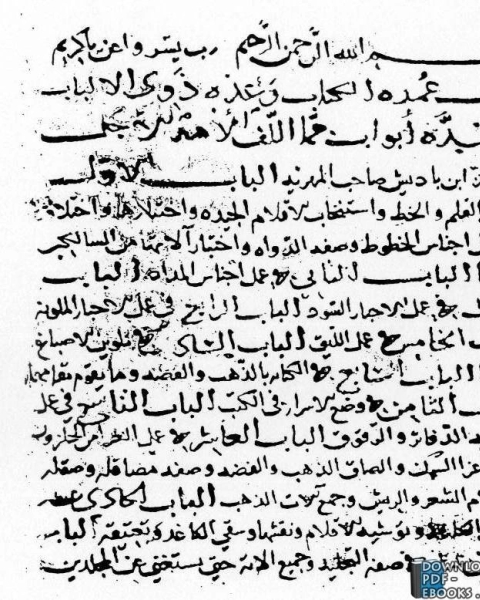 بسم الله الرحمن الرحيم رب يسر واعن ياكريم
عمده الكتاب وعده ذوى الالباب
أبواب مما اللف الامير الاجل
ابن باديس صاحب المهديه الباب الاول
القلم والخط واستنخاب الاقلام الجيده واختلافها
اجناس الخطوط وصفه الدواه واختبار آلاتها من السكاكين
الباب الثانى فى عمل اجناس المداد الباب
فى عمل الاحبار السود الباب الرابع فى عمل الاحبار الملونه
الخامس فى عمل الليق الباب السادس فى تلوين الاصباغ
الباب السابع فى الكتابه بالذهب والفضه وما يقوم مقامهما
الثامن فى وضع الاسرار فى الكتب الباب التاسع فى عمل
الدفاتر والرقوق الباب العاشر فى عمل الغرا من الحلزون
غرا السمك والصاق الذهب والفضه وصفه مصاقله وصقله
الشعر والريش وجمع آلات الذهب الباب الحادى عشر
الكاغد وتوشيه الاقلام ونقشها وسقى الكاغد وتعتيقه الباب
فى صفه التجليد وجميع الاته حتى يستغنى عن المجلدين
DOWNLO
PDF-
EBOOKS.